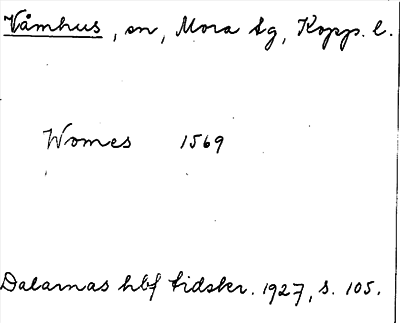 Våmhus, sn, Mora tg, Kopp. l.
Womes 1569
Dalarnas hbf tidskr. 1927, s. 105.